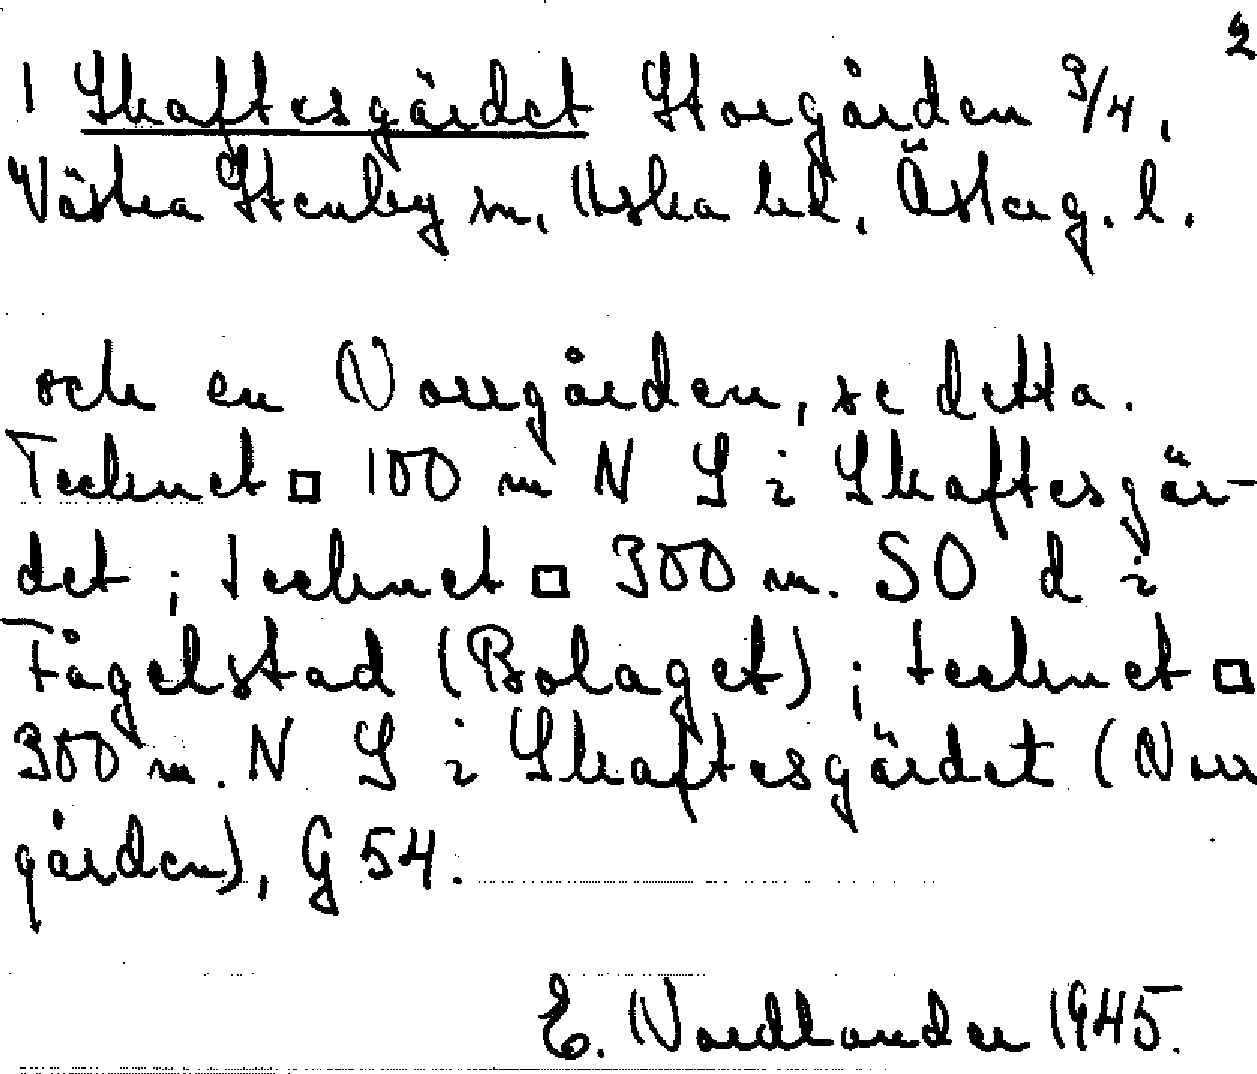 2
1 Skaftesgärdet Storgården 3/4,
Västra Stenby sn, Aska hd, Österg. l.
och en Norrgården, se detta.
Tecknet □ 100 m N S i Skaftesgär-
det; tecknet □ 300 m. SO d i
Fågelstad (Bolaget); tecknet □
300 m. N S i Skaftesgärdet (Norr
gården), G 54.
E. Nordlander 1945.